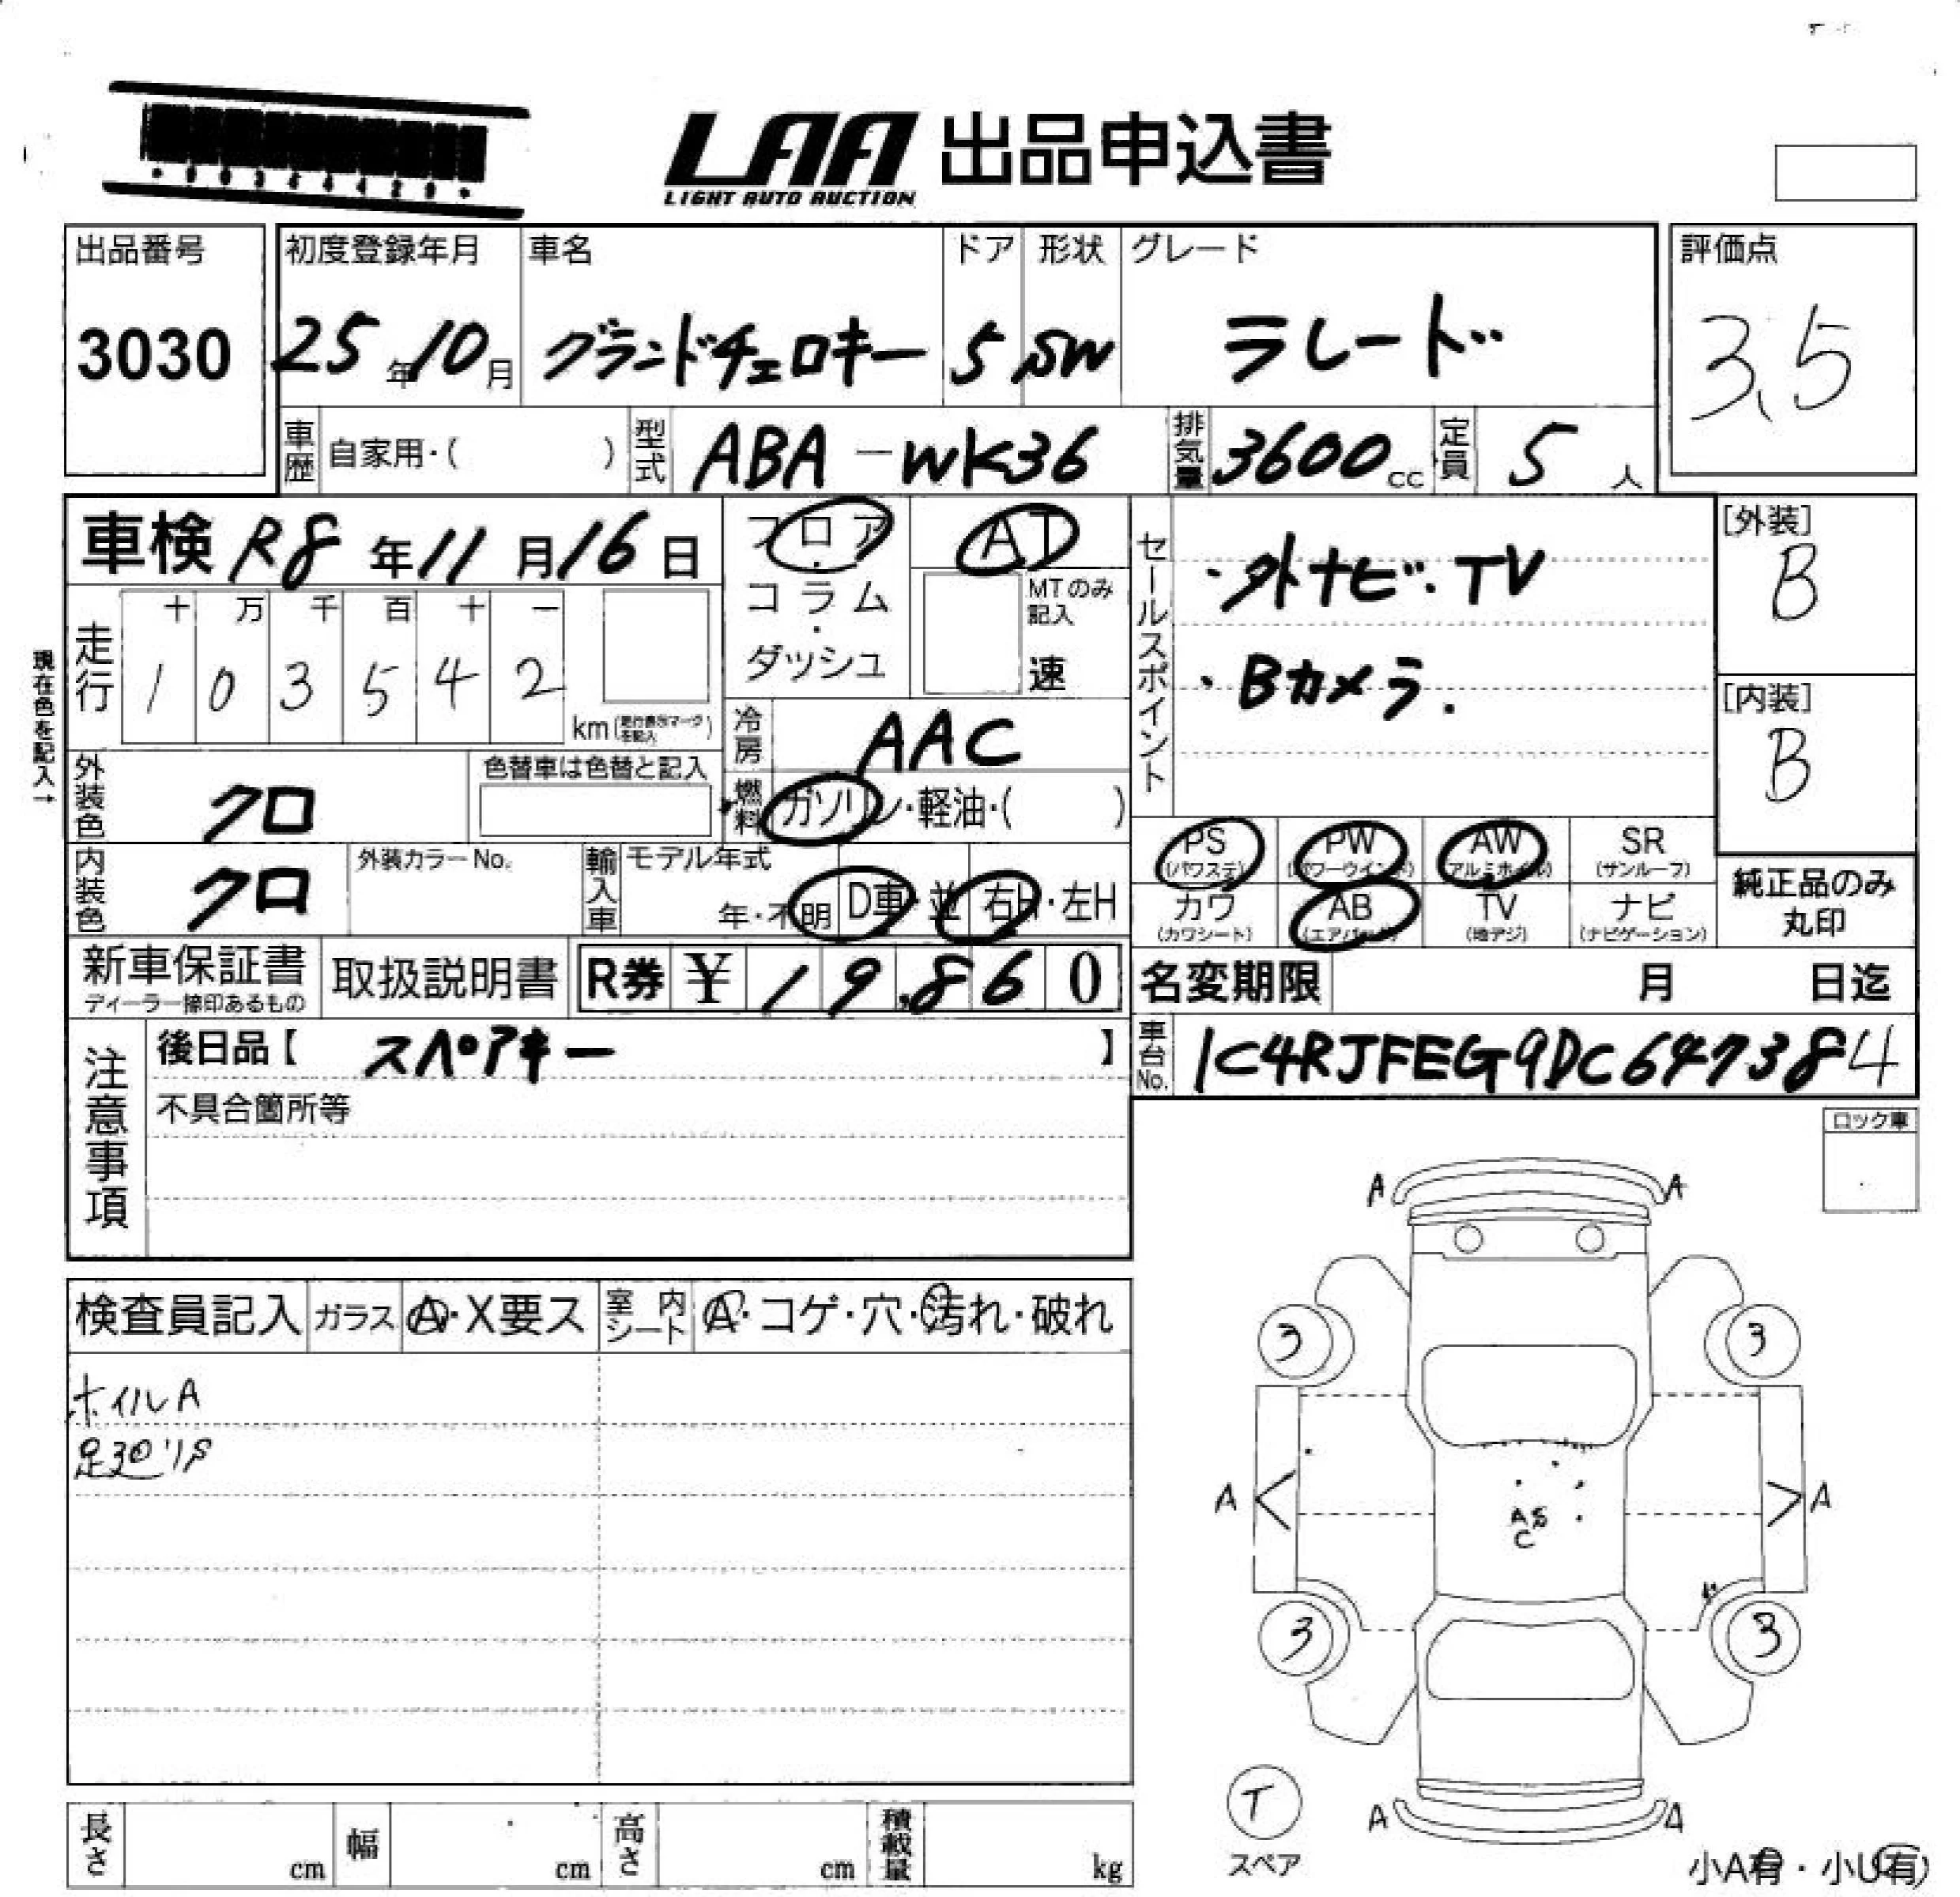 LAA 出品申込書
LIGHT AUTO AUCTION
出品番号
3030
初度登録年月
25年10月
車名
グランドチェロキー
ドア
5
形状
SW
グレード
ラレード
評価点
3.5
車歴 自家用・( )
型式 ABA-WK36
排気量 3600cc
定員 5人
車検 R8年11月16日
フロア・コラム・ダッシュ
AT
MTのみ記入
速
セールスポイント
・外ナビ・TV
・Bカメラ.
[外装]
B
[内装]
B
現在色を記入→
走行
十 万 千 百 十 一
1 0 3 5 4 2
km(走行表示マークを記入)
冷房 AAC
燃料 ガソリン・軽油・( )
外装色 クロ
色替車は色替と記入
内装色 クロ
外装カラーNo.
輸入車 モデル年式
年・不明
D車・並
右H・左H
PS (パワステ)
PW (パワーウインド)
AW (アルミホイル)
SR (サンルーフ)
カワ (カワシート)
AB (エアバック)
TV (地デジ)
ナビ (ナビゲーション)
純正品のみ
丸印
新車保証書
ディーラー捺印あるもの
取扱説明書
R券 ¥ 19,860
名変期限 月 日迄
注意事項
後日品【 スペアキー 】
不具合箇所等
車台No. 1C4RJFEG9DC647384
ロック車
検査員記入
ガラス Ⓐ・X要ス
室内シート A・コゲ・穴・汚れ・破れ
ホイルA
足廻りS
A A
3 3
A A
AS
C
3 3
T
スペア
A A
小A有・小U有
長さ cm
幅 cm
高さ cm
積載量 kg